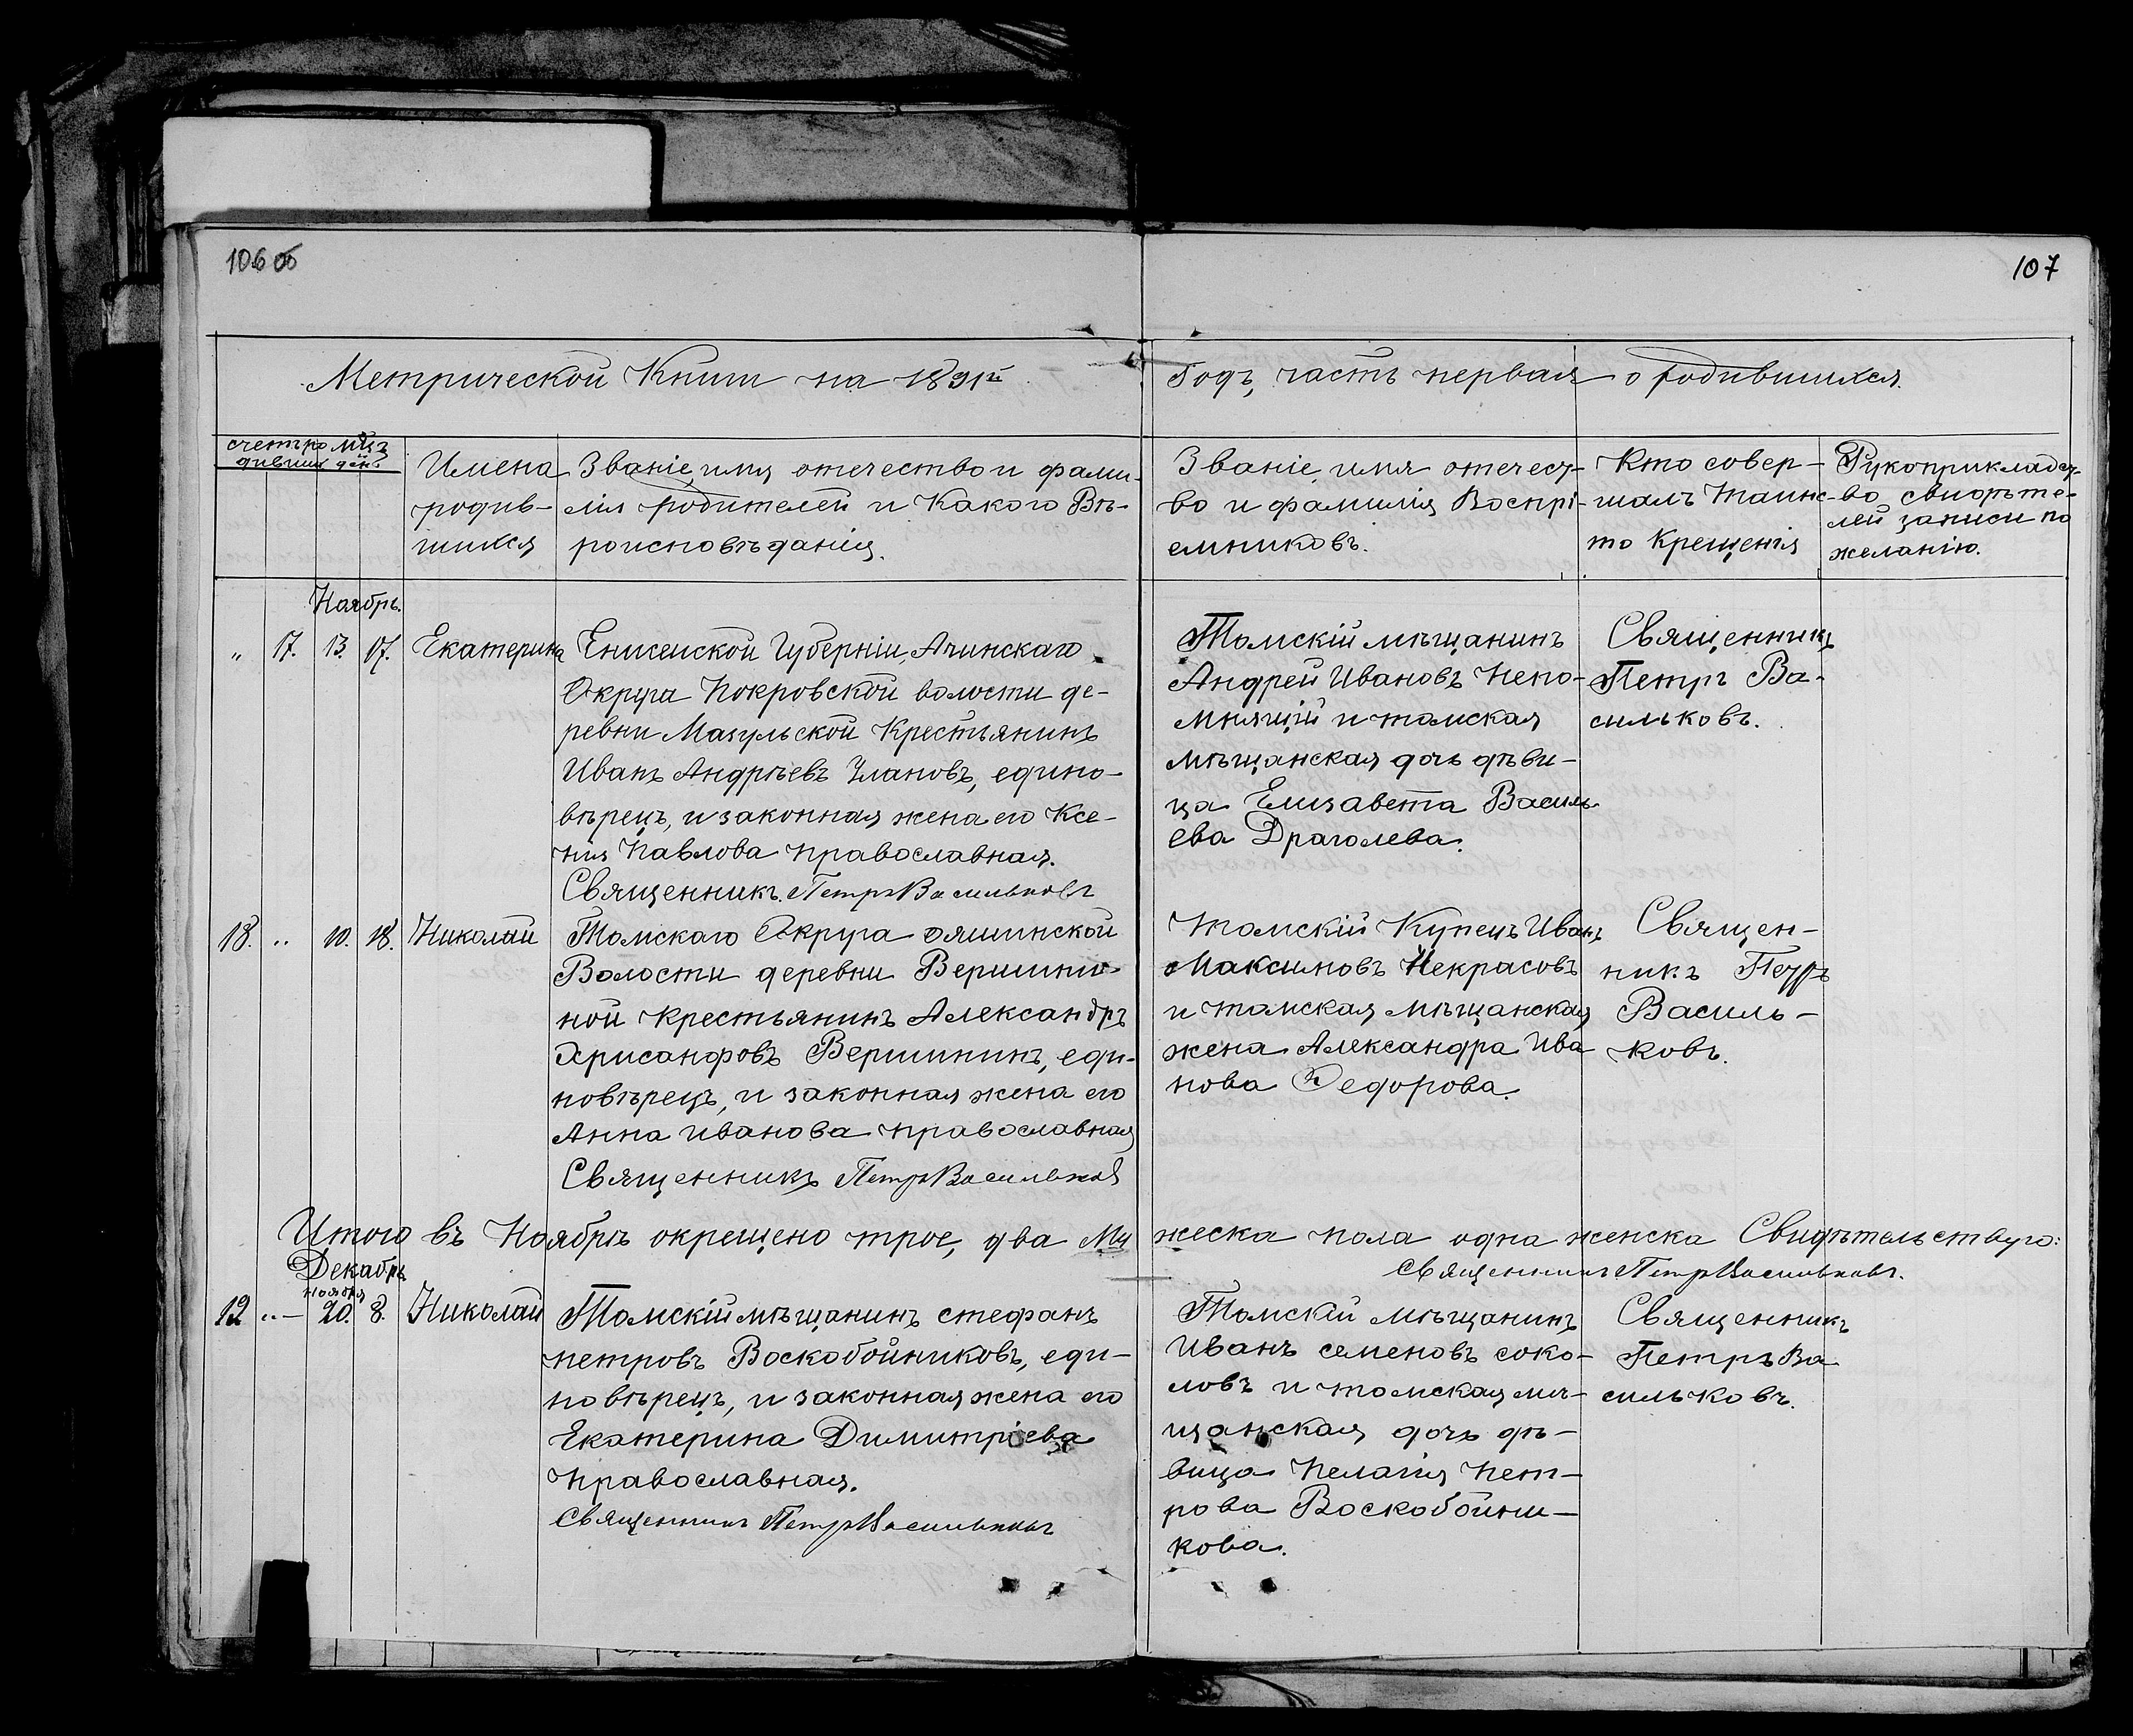 106 об
107
Метрической Книги на 1891й
Годъ, часть первая о родившихся.
счетъ ро
дивших
мцъ
день
Имена
родив-
шихся
Званіе, имя отечество и фами-
лія родителей и Какого Вѣ-
роисповѣданія.
Званіе, имя отечест-
во и фамилія Воспрі-
емниковъ.
Кто совер-
шалъ Таинс-
то Крещенія
Рукоприкладст-
во свидѣте-
лей записи по
желанію.
Ноябрь.
„ 17. 13. 17. Екатерина
Енисейской Губерніи, Ачинскаго
Округа Покровской волости де-
ревни Мазульской Крестьянинъ
Иванъ Андрѣевъ Улановъ, едино-
вѣрецъ, и законная жена его Ксе-
нія Павлова православная.
Священникъ. Петръ Васильковъ
Томскій мѣщанинъ
Андрей Ивановъ Непо-
мнящій и томская
мѣщанская дочь дѣви-
ца Елизавета Василь-
ева Драголева.
Священникъ
Петръ Ва-
сильковъ.
18. .. 10. 18. Николай
Томскаго Округа ояшинской
Волости деревни Вершини-
ной крестьянинъ Александръ
Хрисанфовъ Вершининъ, еди-
новѣрецъ, и законная жена его
Анна Иванова православная
Священникъ Петръ Васильковъ
Томскій Купецъ Иванъ
Максимовъ Некрасовъ
и томская мѣщанская
жена Александра Ива
нова Федорова.
Священ-
никъ Петръ
Василь-
ковъ.
Итого въ Ноябрѣ окрещено трое, два Му
жеска пола одна женска Свидѣтельствую:
Священникъ Петръ Васильковъ.
Декабрь
ноября
19 .. — 20. 8. Николай
Томскій мѣщанинъ стефанъ
петровъ Воскобойниковъ, еди-
новѣрецъ, и законная жена его
Екатерина Димитріева
православная.
Священникъ Петръ Васильковъ
Томскій мѣщанинъ
Иванъ семеновъ соко-
ловъ и томская мѣ-
щанская дочь дѣ-
вица Пелагія Пет-
рова Воскобойни-
кова.
Священникъ
Петръ Ва
сильковъ.